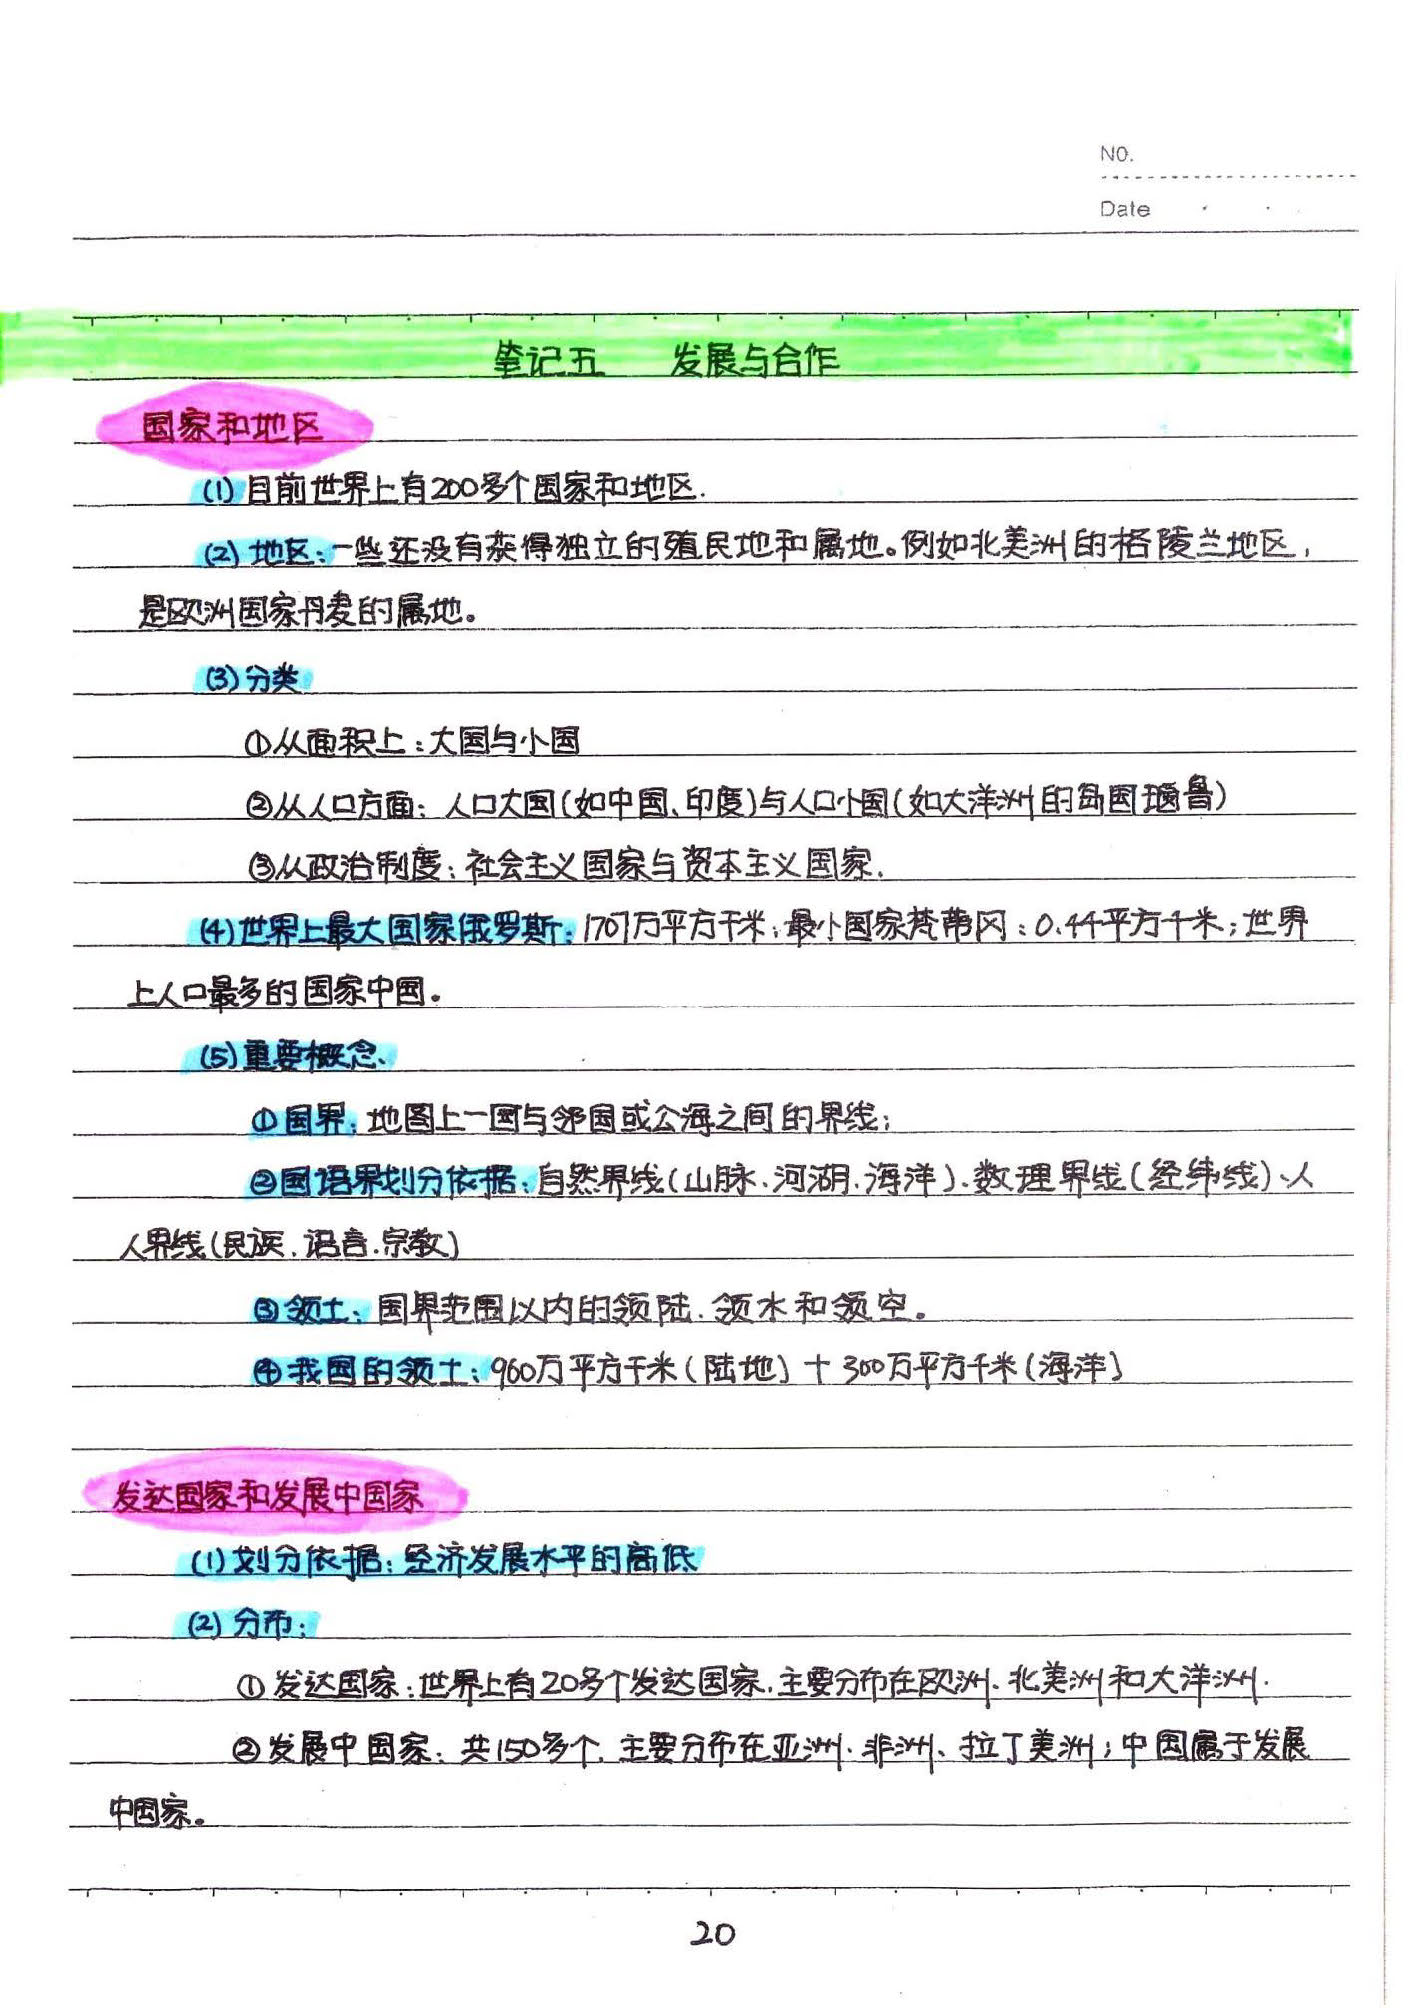 NO.
Date
笔记五 发展与合作
国家和地区
(1) 目前世界上有200多个国家和地区.
(2) 地区:一些还没有获得独立的殖民地和属地。例如北美洲的格陵兰地区,
是欧洲国家丹麦的属地。
(3) 分类
①从面积上:大国与小国
②从人口方面:人口大国(如中国、印度)与人口小国(如大洋洲的岛国瑙鲁)
③从政治制度:社会主义国家与资本主义国家.
(4)世界上最大国家俄罗斯:1707万平方千米;最小国家梵蒂冈:0.44平方千米;世界
上人口最多的国家中国。
(5)重要概念、
①国界:地图上一国与邻国或公海之间的界线;
②国语界划分依据:自然界线(山脉、河湖、海洋)、数理界线(经纬线)、人
人界线(民族、语言、宗教)
③领土:国界范围以内的领陆、领水和领空。
④我国的领土:960万平方千米(陆地)+300万平方千米(海洋)
发达国家和发展中国家
(1)划分依据:经济发展水平的高低
(2)分布:
①发达国家:世界上有20多个发达国家,主要分布在欧洲、北美洲和大洋洲.
②发展中国家:共150多个,主要分布在亚洲、非洲、拉丁美洲;中国属于发展
中国家。
20